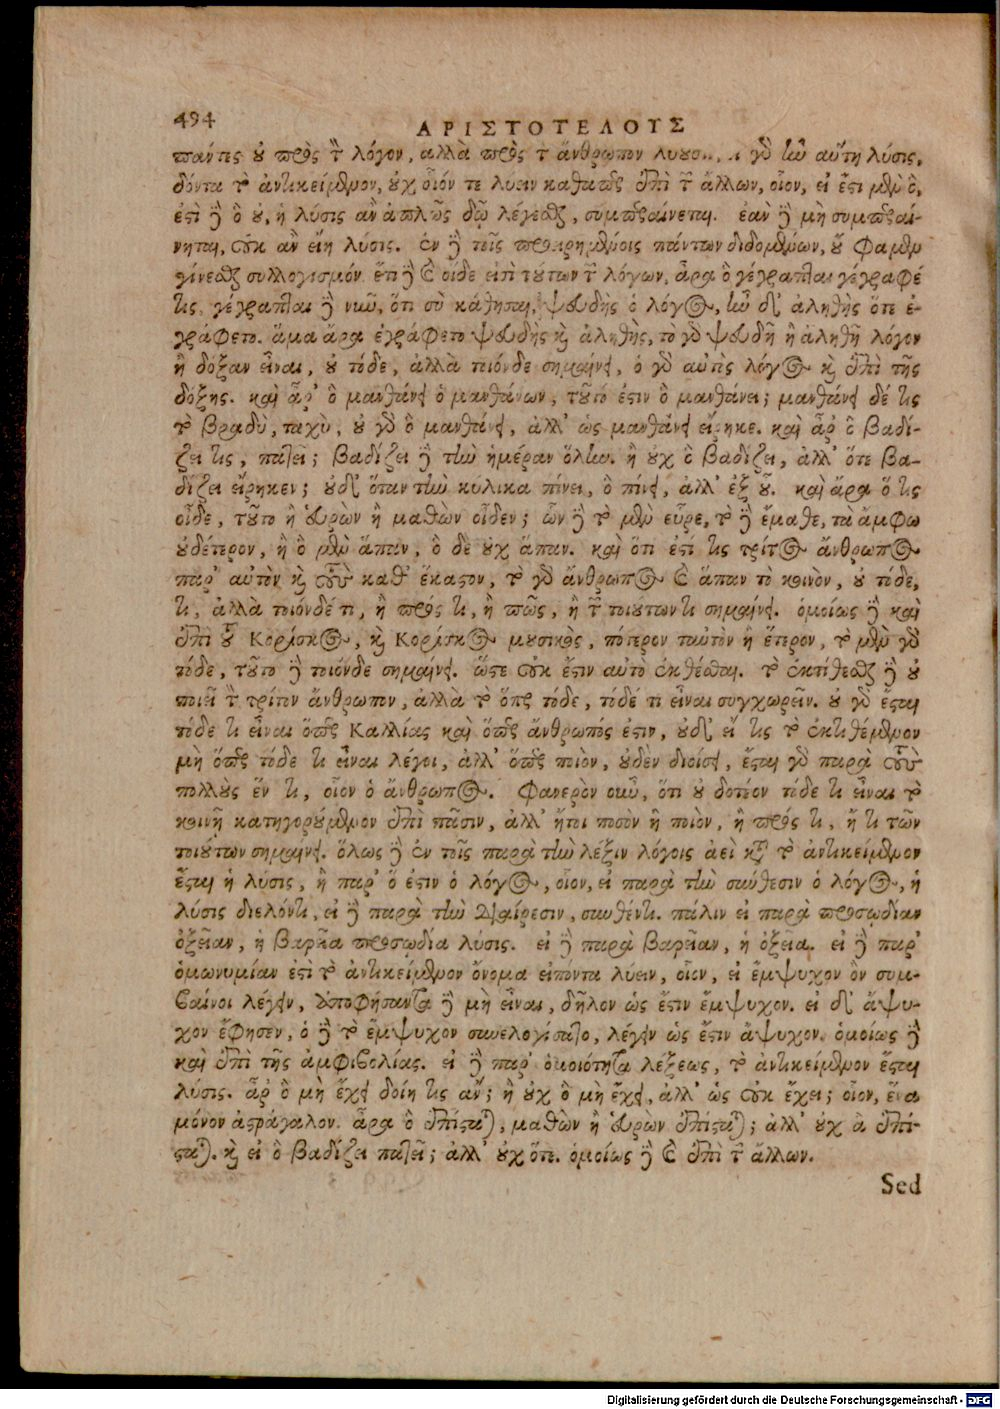 494
ΑΡΙΣΤΟΤΕΛΟΥΣ
πάντες οὐ πρὸς τὸν λόγον, ἀλλὰ πρὸς τὸν ἄνθρωπον λύουσιν. εἰ γὰρ ἦν αὕτη λύσις,
δόντα τὸ ἀντικείμενον, οὐχ οἷόν τε λύειν καθάπερ ἐπὶ τῶν ἄλλων, οἷον, εἰ ἔστι μὲν ὃ,
ἐστὶ δὲ ὃ οὐ, ἡ λύσις ἂν ἁπλῶς δῷ λέγεσθαι, συμπεραίνεται. ἐὰν δὲ μὴ συμπεραί-
νηται, οὐκ ἂν εἴη λύσις. ἐν δὲ τοῖς προειρημένοις πάντων διδομένων, οὔ φαμεν
γίνεσθαι συλλογισμόν. ἔτι δὲ καὶ οἵδε εἰσὶ τούτων τῶν λόγων, ἆρα ὃ γέγραπται γέγραφέ
τις, γέγραπται δὲ νῦν, ὅτι σὺ κάθησαι, ψευδὴς ὁ λόγος, ἦν δ' ἀληθὴς ὅτε ἐ-
γράφετο. ἅμα ἄρα ἐγράφετο ψευδὴς καὶ ἀληθὴς, τὸ γὰρ ψευδῆ ἢ ἀληθῆ λόγον
ἢ δόξαν εἶναι, οὐ τόδε, ἀλλὰ τοιόνδε σημαίνει, ὁ γὰρ αὐτὸς λόγος καὶ ἐπὶ τῆς
δόξης. καὶ ἆρ' ὃ μανθάνει ὁ μανθάνων, τοῦτό ἐστιν ὃ μανθάνει; μανθάνει δέ τις
τὸ βραδὺ, ταχὺ, οὐ γὰρ ὃ μανθάνει, ἀλλ' ὡς μανθάνει εἴρηκε. καὶ ἆρ' ὃ βαδί-
ζει τις, πατεῖ; βαδίζει δὲ τὴν ἡμέραν ὅλην. ἢ οὐχ ὃ βαδίζει, ἀλλ' ὅτε βα-
δίζει εἴρηκεν; οὐδ' ὅταν τὴν κύλικα πίνει, ὃ πίνει, ἀλλ' ἐξ οὗ. καὶ ἄρα ὅ τις
οἶδε, τοῦτο ἢ εὑρὼν ἢ μαθὼν οἶδεν; ὧν δὲ τὸ μὲν εὗρε, τὸ δὲ ἔμαθε, τὰ ἄμφω
οὐδέτερον, ἢ ὃ μὲν ἅπαν, ὃ δὲ οὐχ ἅπαν. καὶ ὅτι ἐστί τις τρίτος ἄνθρωπος
παρ' αὐτὸν καὶ τοὺς καθ' ἕκαστον, τὸ γὰρ ἄνθρωπος καὶ ἅπαν τὸ κοινὸν, οὐ τόδε,
τι, ἀλλὰ τοιόνδέ τι, ἢ πρός τι, ἢ πῶς, ἢ τῶν τοιούτων τι σημαίνει. ὁμοίως δὲ καὶ
ἐπὶ τοῦ Κορίσκος, καὶ Κορίσκος μουσικὸς, πότερον ταὐτὸν ἢ ἕτερον, τὸ μὲν γὰρ
τόδε, τοῦτο δὲ τοιόνδε σημαίνει. ὥστε οὐκ ἔστιν αὐτὸ ἐκθέσθαι. τὸ ἐκτίθεσθαι δὲ οὐ
ποιεῖ τὸν τρίτον ἄνθρωπον, ἀλλὰ τὸ ὅπερ τόδε, τόδέ τι εἶναι συγχωρεῖν. οὐ γὰρ ἔσται
τόδε τι εἶναι ὅπερ Καλλίας καὶ ὅπερ ἄνθρωπός ἐστιν, οὐδ' εἴ τις τὸ ἐκτιθέμενον
μὴ ὅπερ τόδε τι εἶναι λέγοι, ἀλλ' ὅπερ ποιὸν, οὐδὲν διοίσει, ἔσται γὰρ παρὰ τοὺς
πολλοὺς ἕν τι, οἷον ὁ ἄνθρωπος. Φανερὸν οὖν, ὅτι οὐ δοτέον τόδε τι εἶναι τὸ
κοινῇ κατηγορούμενον ἐπὶ πᾶσιν, ἀλλ' ἤτοι ποσὸν ἢ ποιὸν, ἢ πρός τι, ἤ τι τῶν
τοιούτων σημαίνει. ὅλως δὲ ἐν τοῖς παρὰ τὴν λέξιν λόγοις ἀεὶ κατὰ τὸ ἀντικείμενον
ἔσται ἡ λύσις, ἢ παρ' ὅ ἐστιν ὁ λόγος, οἷον, εἰ παρὰ τὴν σύνθεσιν ὁ λόγος, ἡ
λύσις διελόντι, εἰ δὲ παρὰ τὴν διαίρεσιν, συνθέντι. πάλιν εἰ παρὰ προσῳδίαν
ὀξεῖαν, ἡ βαρεῖα προσῳδία λύσις. εἰ δὲ παρὰ βαρεῖαν, ἡ ὀξεῖα. εἰ δὲ παρ'
ὁμωνυμίαν ἐστὶ τὸ ἀντικείμενον ὄνομα εἰπόντα λύειν, οἷον, εἰ ἔμψυχον ὂν συμ-
βαίνοι λέγειν, ἀποφήσαντα δὲ μὴ εἶναι, δῆλον ὡς ἔστιν ἔμψυχον. εἰ δ' ἄψυ-
χον ἔφησεν, ὁ δὲ τὸ ἔμψυχον συνελογίσατο, λέγειν ὡς ἔστιν ἄψυχον. ὁμοίως δὲ
καὶ ἐπὶ τῆς ἀμφιβολίας. εἰ δὲ παρ' ὁμοιότητα λέξεως, τὸ ἀντικείμενον ἔσται
λύσις. ἆρ' ὃ μὴ ἔχει δοίη τις ἄν; ἢ οὐχ ὃ μὴ ἔχει, ἀλλ' ὡς οὐκ ἔχει; οἷον, ἕνα
μόνον ἀστράγαλον. ἆρα ὃ ἐπίσταται, μαθὼν ἢ εὑρὼν ἐπίσταται; ἀλλ' οὐχ ἃ ἐπί-
σταται. καὶ εἰ ὃ βαδίζει πατεῖ; ἀλλ' οὐχ ὅτε. ὁμοίως δὲ καὶ ἐπὶ τῶν ἄλλων.
Sed
Digitalisierung gefördert durch die Deutsche Forschungsgemeinschaft - DFG